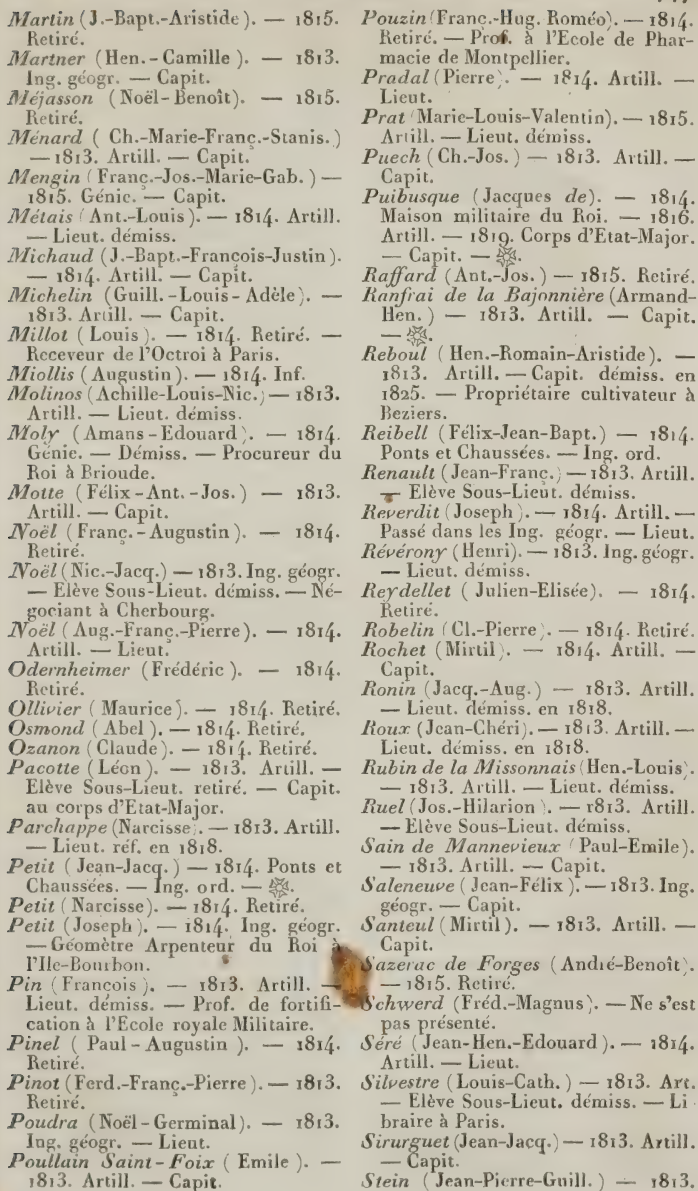 Martin (J.-Bapt.-Aristide). — 1815.
Retiré.
Martner (Hen.-Camille). — 1813.
Ing. géogr. — Capit.
Méjasson (Noël-Benoît). — 1815.
Retiré.
Ménard (Ch.-Marie-Franç.-Stanis.)
— 1813. Artill. — Capit.
Mengin (Franç.-Jos.-Marie-Gab.) —
1815. Génie. — Capit.
Métais (Ant.-Louis). — 1814. Artill.
— Lieut. démiss.
Michaud (J.-Bapt.-François-Justin).
— 1814. Artill. — Capit.
Michelin (Guill.-Louis-Adèle). —
1813. Artill. — Capit.
Millot (Louis). — 1814. Retiré. —
Receveur de l'Octroi à Paris.
Miollis (Augustin). — 1814. Inf.
Molinos (Achille-Louis-Nic.) — 1813.
Artill. — Lieut. démiss.
Moly (Amans-Edouard). — 1814.
Génie. — Démiss. — Procureur du
Roi à Brioude.
Motte (Félix-Ant.-Jos.) — 1813.
Artill. — Capit.
Noël (Franç.-Augustin). — 1814.
Retiré.
Noël (Nic.-Jacq.) — 1813. Ing. géogr.
— Elève Sous-Lieut. démiss. — Né-
gociant à Cherbourg.
Noël (Aug.-Franç.-Pierre). — 1814.
Artill. — Lieut.
Odernheimer (Frédéric). — 1814.
Retiré.
Ollivier (Maurice). — 1814. Retiré.
Osmond (Abel). — 1814. Retiré.
Ozanon (Claude). — 1814. Retiré.
Pacotte (Léon). — 1813. Artill. —
Elève Sous-Lieut. retiré. — Capit.
au corps d'Etat-Major.
Parchappe (Narcisse). — 1813. Artill.
— Lieut. réf. en 1818.
Petit (Jean-Jacq.) — 1814. Ponts et
Chaussées. — Ing. ord. —
Petit (Narcisse). — 1814. Retiré.
Petit (Joseph). — 1814. Ing. géogr.
— Géomètre Arpenteur du Roi à
l'Ile-Bourbon.
Pin (François). — 1813. Artill. —
Lieut. démiss. — Prof. de fortifi-
cation à l'Ecole royale Militaire.
Pinel (Paul-Augustin). — 1814.
Retiré.
Pinot (Ferd.-Franç.-Pierre). — 1813.
Retiré.
Poudra (Noël-Germinal). — 1813.
Ing. géogr. — Lieut.
Poullain Saint-Foix (Emile). —
1813. Artill. — Capit.
Pouzin (Franç.-Hug. Roméo). — 1814.
Retiré. — Prof. à l'Ecole de Phar-
macie de Montpellier.
Pradal (Pierre). — 1814. Artill. —
Lieut.
Prat (Marie-Louis-Valentin). — 1815.
Artill. — Lieut. démiss.
Puech (Ch.-Jos.) — 1813. Artill. —
Capit.
Puibusque (Jacques de). — 1814.
Maison militaire du Roi. — 1816.
Artill. — 1819. Corps d'Etat-Major.
— Capit. —
Raffard (Ant.-Jos.) — 1815. Retiré.
Ranfrai de la Bajonnière (Armand-
Hen.) — 1813. Artill. — Capit.
—
Reboul (Hen.-Romain-Aristide). —
1813. Artill. — Capit. démiss. en
1825. — Propriétaire cultivateur à
Beziers.
Reibell (Félix-Jean-Bapt.) — 1814.
Ponts et Chaussées. — Ing. ord.
Renault (Jean-Franç.) — 1813. Artill.
— Elève Sous-Lieut. démiss.
Reverdit (Joseph). — 1814. Artill. —
Passé dans les Ing. géogr. — Lieut.
Révérony (Henri). — 1813. Ing. géogr.
— Lieut. démiss.
Reydellet (Julien-Elisée). — 1814.
Retiré.
Robelin (Cl.-Pierre). — 1814. Retiré.
Rochet (Mirtil). — 1814. Artill. —
Capit.
Ronin (Jacq.-Aug.) — 1813. Artill.
— Lieut. démiss. en 1818.
Roux (Jean-Chéri). — 1813. Artill. —
Lieut. démiss. en 1818.
Rubin de la Missonnais (Hen.-Louis).
— 1813. Artill. — Lieut. démiss.
Ruel (Jos.-Hilarion). — 1813. Artill.
— Elève Sous-Lieut. démiss.
Sain de Mannevieux (Paul-Emile).
— 1813. Artill. — Capit.
Saleneuve (Jean-Félix). — 1813. Ing.
géogr. — Capit.
Santeul (Mirtil). — 1813. Artill. —
Capit.
Sazerac de Forges (André-Benoît).
— 1815. Retiré.
Schwerd (Fréd.-Magnus). — Ne s'est
pas présenté.
Séré (Jean-Hen.-Edouard). — 1814.
Artill. — Lieut.
Silvestre (Louis-Cath.) — 1813. Art.
— Elève Sous-Lieut. démiss. — Li
braire à Paris.
Sirurguet (Jean-Jacq.) — 1813. Artill.
— Capit.
Stein (Jean-Pierre-Guill.) — 1813.